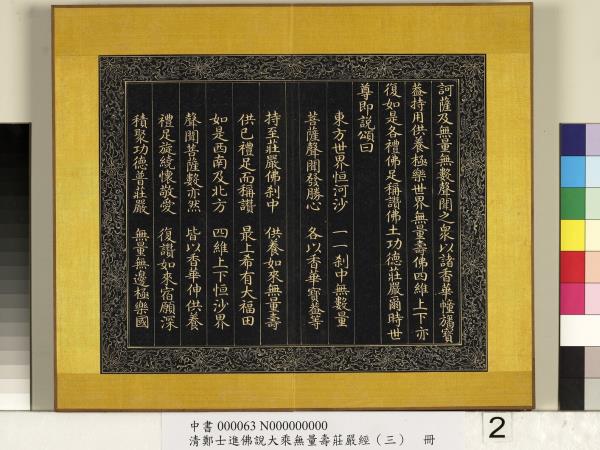 訶薩及無量無數聲聞之衆以諸香華幢旛寶
葢持用供養極樂世界無量壽佛四維上下亦
復如是各禮佛足稱讚佛土功德莊嚴爾時世
尊即說頌曰
東方世界恒河沙 一一剎中無數量
菩薩聲聞發勝心 各以香華寶葢等
持至莊嚴佛剎中 供養如來無量壽
供已禮足而稱讚 最上希有大福田
如是西南及北方 四維上下恒沙界
聲聞菩薩數亦然 皆以香華伸供養
禮足旋繞懷敬愛 復讚如來宿願深
積聚功德普莊嚴 無量無邊極樂國
中書 000063 N000000000
清鄭士進佛說大乘無量壽莊嚴經（三） 冊
2